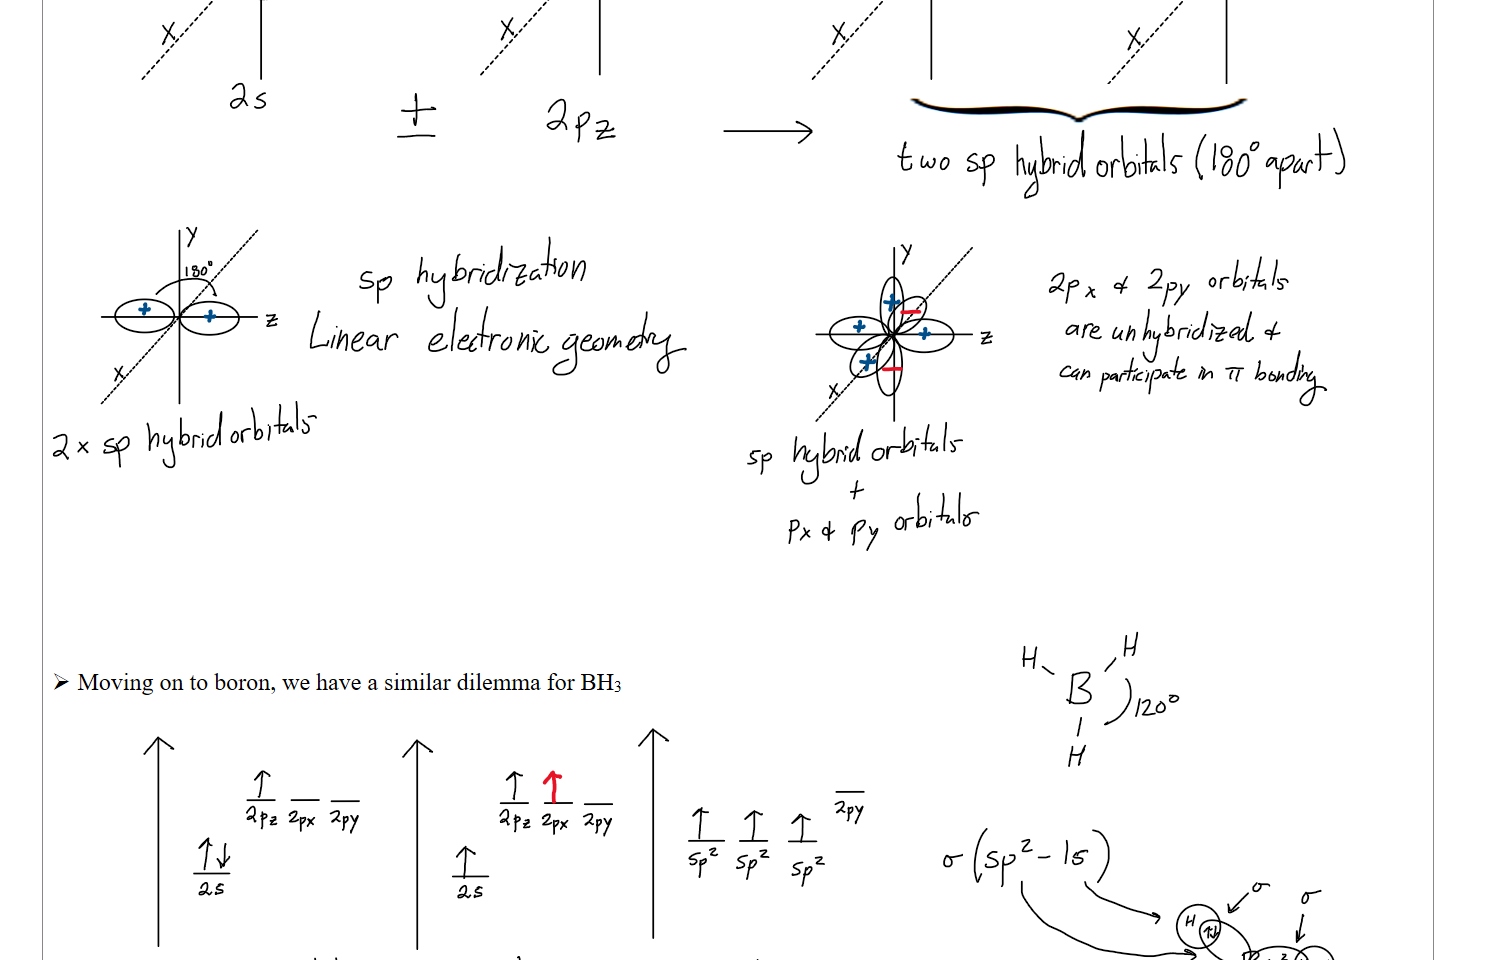 X X X X
2s ± 2pz →
two sp hybrid orbitals (180° apart)
y
180°
z
x
2 x sp hybrid orbitals
sp hybridization
Linear electronic geometry
y
+ − + + + −
z
x
sp hybrid orbitals
+
px & py orbitals
2px & 2py orbitals
are unhybridized &
can participate in π bonding
➢ Moving on to boron, we have a similar dilemma for BH3
H H
B
120°
H
↑
2pz 2px 2py
↑↓
2s
↑ ↑
2pz 2px 2py
↑
2s
2py
↑ ↑ ↑
sp² sp² sp²
σ (sp² - 1s)
σ σ
H ↑↓